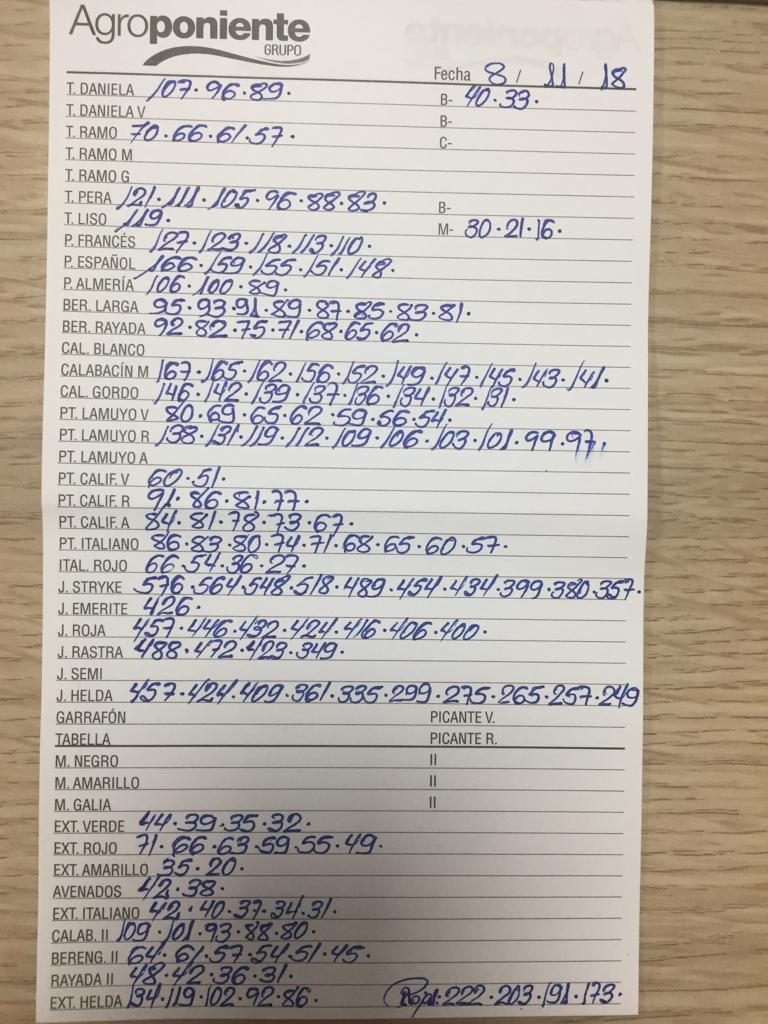 Agroponiente
GRUPO
Fecha 8 / 11 / 18
T. DANIELA 107·96·89· B- 40·33·
T. DANIELA V B-
T. RAMO 70·66·61·57· C-
T. RAMO M
T. RAMO G
T. PERA 121·111·105·96·88·83· B-
T. LISO 119· M- 30·21·16·
P. FRANCÉS 127·123·118·113·110·
P. ESPAÑOL 166·159·155·151·148·
P. ALMERÍA 106·100·89·
BER. LARGA 95·93·91·89·87·85·83·81·
BER. RAYADA 92·82·75·71·68·65·62·
CAL. BLANCO
CALABACÍN M 167·165·162·156·152·149·147·145·143·141·
CAL. GORDO 146·142·139·137·136·134·132·131·
PT. LAMUYO V 80·69·65·62·59·56·54·
PT. LAMUYO R 138·131·119·112·109·106·103·101·99·97·
PT. LAMUYO A
PT. CALIF. V 60·51·
PT. CALIF. R 91·86·81·77·
PT. CALIF. A 84·81·78·73·67·
PT. ITALIANO 86·83·80·74·71·68·65·60·57·
ITAL. ROJO 66·54·36·27·
J. STRYKE 576·564·548·518·489·454·434·399·380·357·
J. EMERITE 426·
J. ROJA 457·446·432·424·416·406·400·
J. RASTRA 488·472·423·349·
J. SEMI
J. HELDA 457·424·409·361·335·299·275·265·257·249
GARRAFÓN PICANTE V.
TABELLA PICANTE R.
M. NEGRO II
M. AMARILLO II
M. GALIA II
EXT. VERDE 44·39·35·32·
EXT. ROJO 71·66·63·59·55·49·
EXT. AMARILLO 35·20·
AVENADOS 42·38·
EXT. ITALIANO 42·40·37·34·31·
CALAB. II 109·101·93·88·80·
BERENG. II 64·61·57·54·51·45·
RAYADA II 48·42·36·31·
EXT. HELDA 134·119·102·92·86· 222·203·191·173·